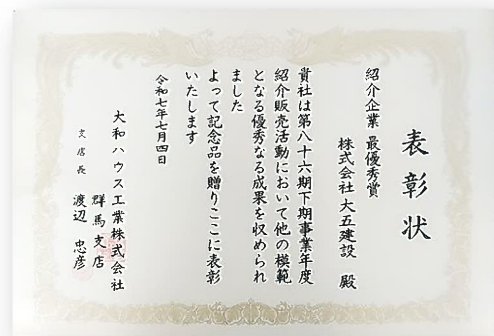 表彰状
紹介企業 最優秀賞
株式会社 大五建設 殿
貴社は第八十六期下期事業年度
紹介販売活動において他の模範
となる優秀なる成果を収められ
ました
よって記念品を贈りここに表彰
いたします
令和七年七月四日
大和ハウス工業株式会社
群馬支店
支店長 渡辺 忠彦